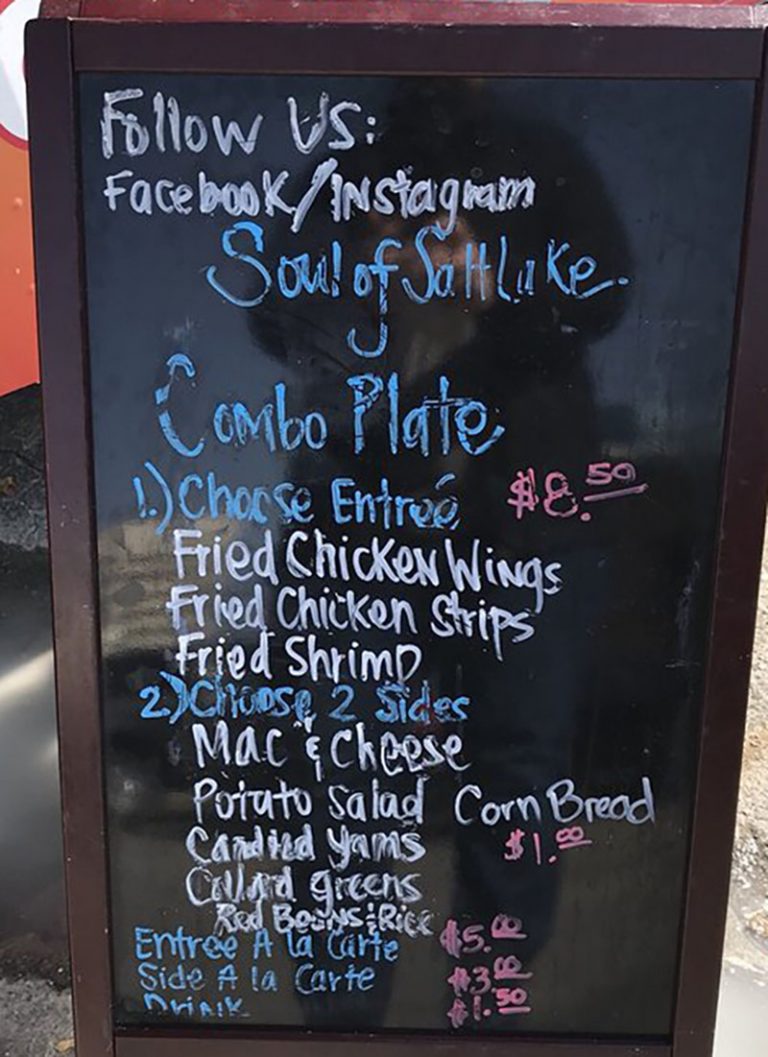 Follow Us:
Facebook/Instagram
Soul of Salt Lake.
Combo Plate
1.) Choose Entreé $8.50
Fried Chicken Wings
Fried Chicken Strips
Fried Shrimp
2) Choose 2 Sides
Mac & Cheese
Potato Salad Corn Bread
Candied Yams $1.00
Collard greens
Red Beans & Rice
Entree A la Carte $5.00
Side A la Carte $3.00
Drink $1.50